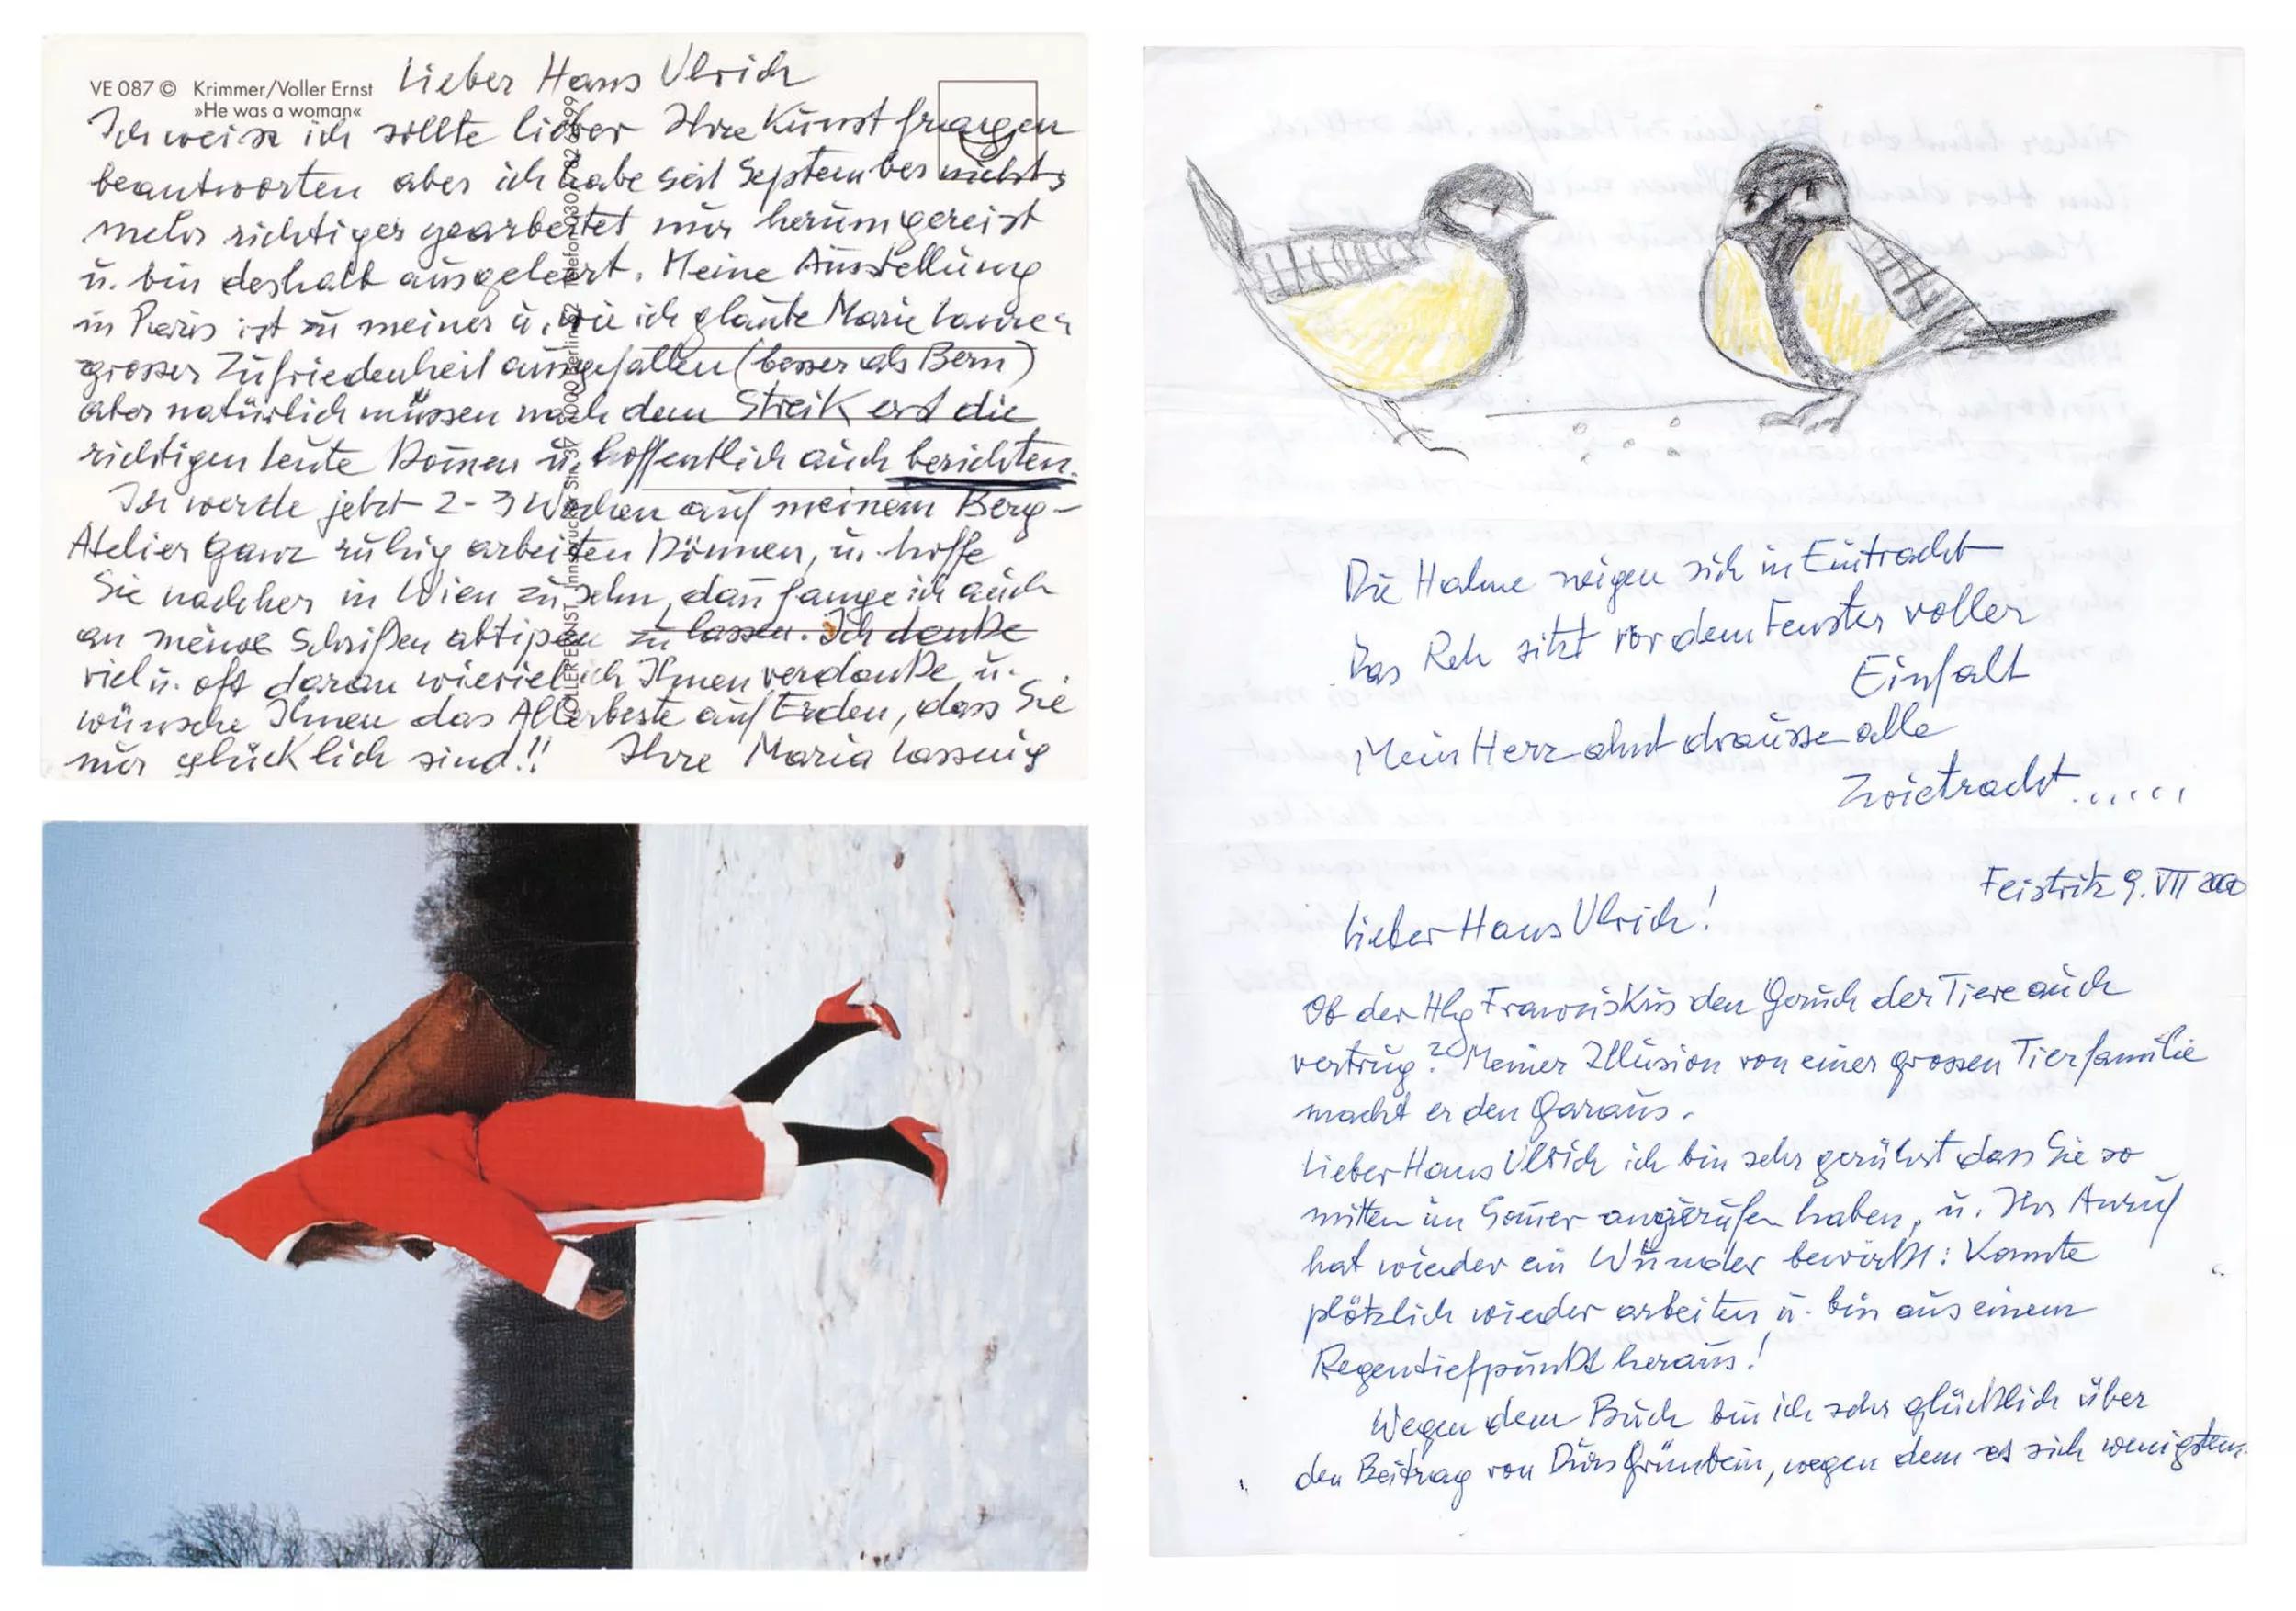 VE 087 © Krimmer/Voller Ernst
»He was a woman«
Lieber Hans Ulrich
Ich weiss ich sollte lieber Ihre Kunstfragen
beantworten aber ich habe seit September nichts
mehr richtiges gearbeitet nur herumgereist
u. bin deshalb ausgeleert. Meine Ausstellung
in Paris ist zu meiner u. wie ich glaube Marie Laure's
grosser Zufriedenheit ausgefallen (besser als Bern)
aber natürlich müssen nach dem Streik erst die
richtigen Leute komen u. hoffentlich auch berichten.
Ich werde jetzt 2-3 Wochen auf meinem Berg-
Atelier ganz ruhig arbeiten können, u. hoffe
Sie nachher in Wien zu sehn, dan fange ich auch
an meine Schriften abtipen zu lassen. Ich denke
viel u. oft daran wieviel ich Ihnen verdanke u.
wünsche Ihnen das Allerbeste auf Erden, dass Sie
nur glücklich sind!! Ihre Maria Lassnig
VOLLER ERNST Innsbrucker Str. 37 1000 Berlin 62 Telefon 030/782
Die Halme neigen sich in Eintracht
Das Reh sitzt vor dem Fenster voller
Einfalt
Mein Herz ahnt drausse alle
Zwietracht......
Feistritz 9. VII 2000
Lieber Hans Ulrich!
Ob der Hlg Franziskus den Geruch der Tiere auch
vertrug? Meiner Illusion von einer grossen Tierfamilie
macht er den Garaus.
Lieber Hans Ulrich ich bin sehr gerührt dass Sie so
mitten im Somer angerufen haben, u. Ihr Anruf
hat wieder ein Wunder bewirkt: Konnte
plötzlich wieder arbeiten u. bin aus einem
Regentiefpunkt heraus!
Wegen dem Buch bin ich sehr glücklich über
den Beitrag von Durs Grünbein, wegen dem es sich wenigstens